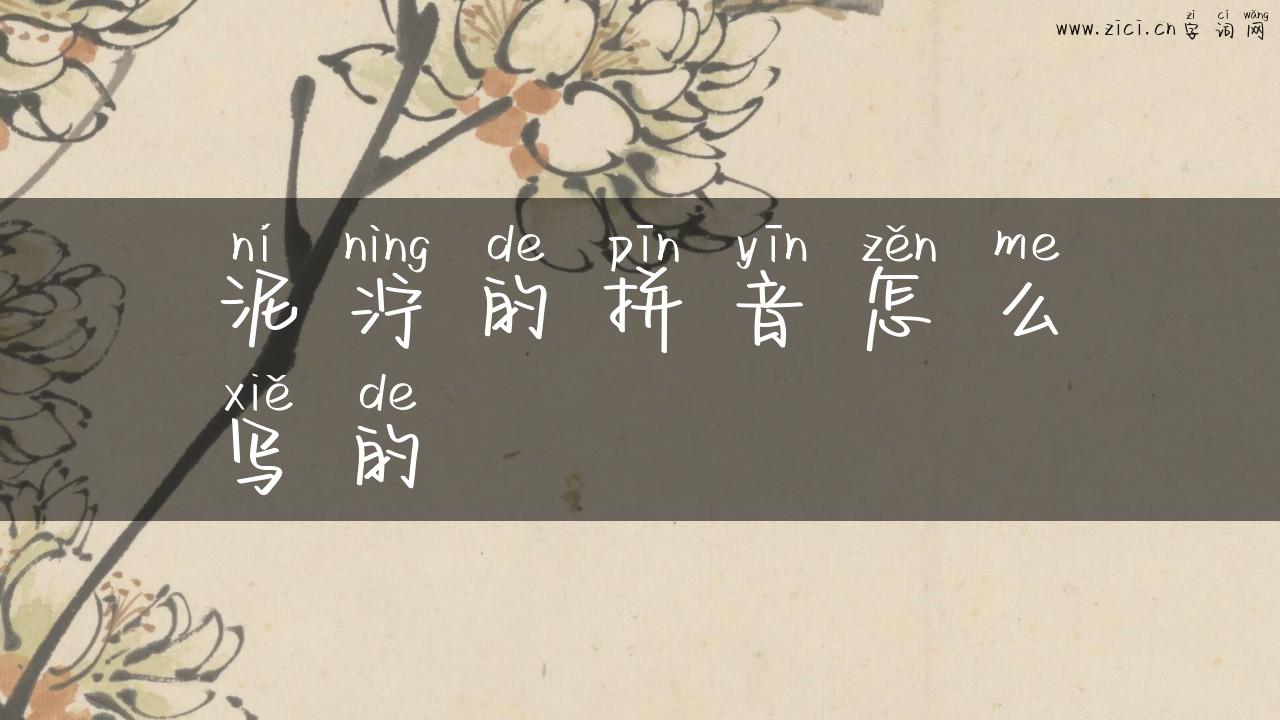 zì cí wǎng
www.zici.cn 字 词 网
ní nìng de pīn yīn zěn me
泥 泞 的 拼 音 怎 么
xiě de
写 的